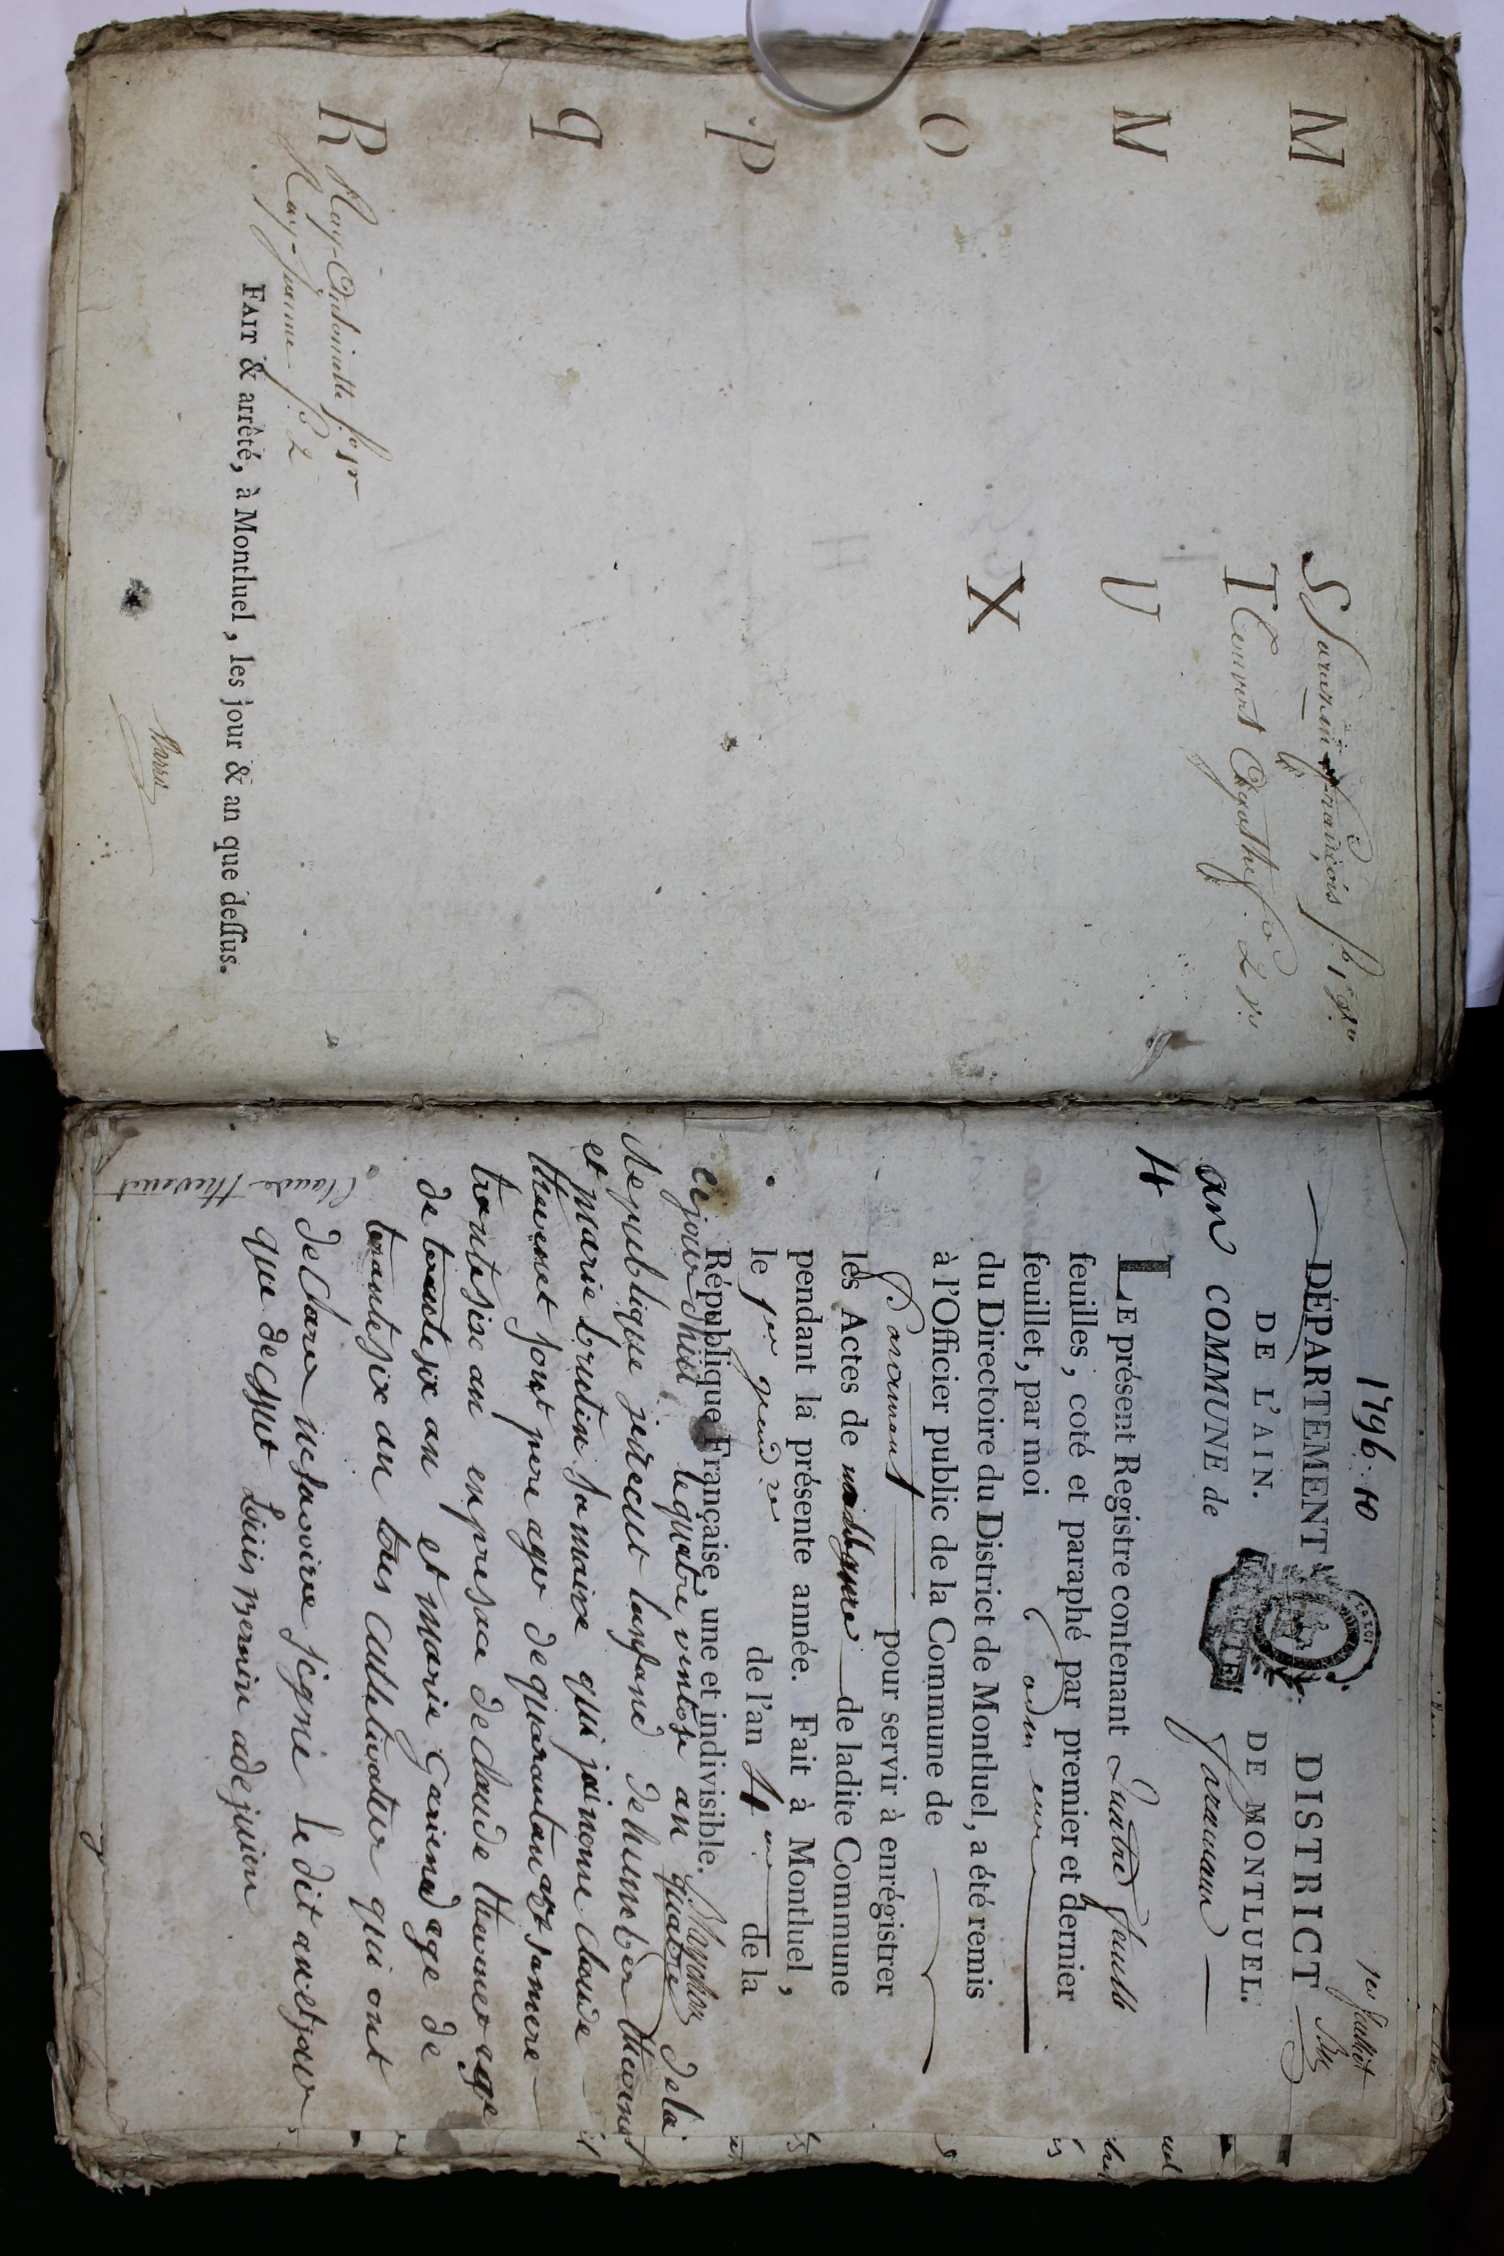 M
N
O
P
q
R
Ray Antoinette f.o 1er
Ray jeanne f.o 2
S Sarazin françois f.o 1er vo
T Teuvent Agathe f.o 2 ro
U
X
FAIT & arrêté, à Montluel, les jour & an que deſſus.
1796: 10
1er feuillet
DÉPARTEMENT
DE L'AIN.
DISTRICT
DE MONTLUEL.
LA LOI
an 4
COMMUNE de faramans
LE présent Registre contenant quatre feuilles
feuilles, coté et paraphé par premier et dernier
feuillet, par moi
du Directoire du District de Montluel, a été remis
à l'Officier public de la Commune de
faramans pour servir à enrégistrer
les Actes de de ladite Commune
pendant la présente année. Fait à Montluel,
le 1er de l'an 4me de la
République Française, une et indivisible.
cejourdhui le quatre ventose an quatre de la
Republique jai recut lenfand de humber thevenet
et marie sa maire qui jai nome claude
thevenet sont pere age de quarantan et sa mere
trantesixe an en presance de claude thevenet age
de trantesix an et marie age de
trantesix an tous cultivateur qui ont
declare ne savoire signie le dit an et jour
que dessut Louis adejoien
Claude thevenet